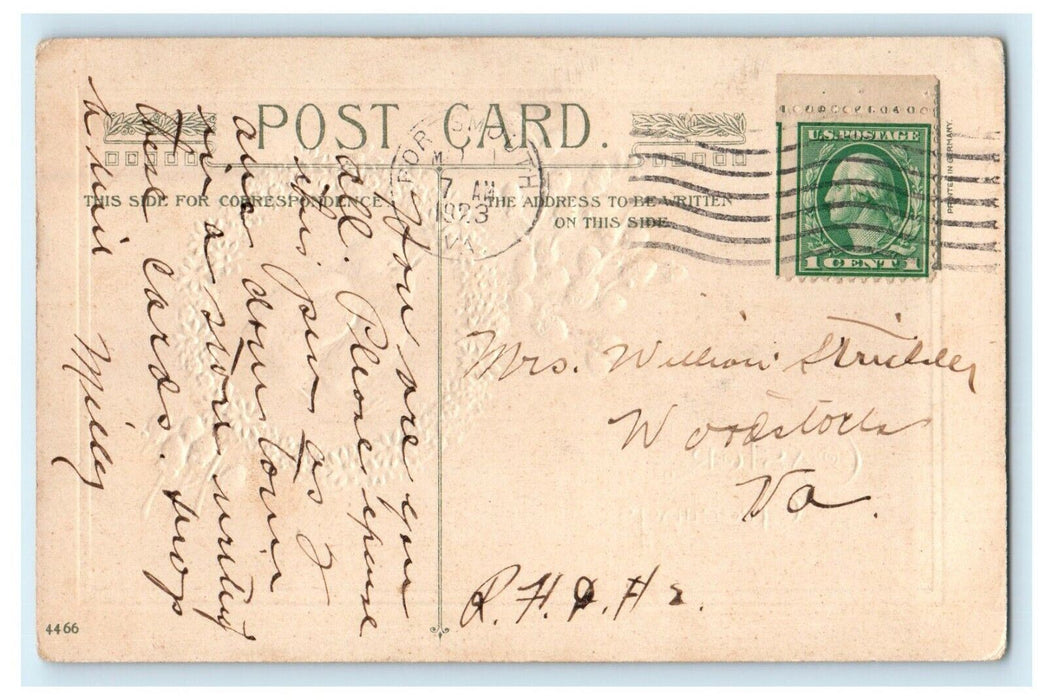 POST CARD.
THIS SIDE FOR CORRESPONDENCE.
THE ADDRESS TO BE WRITTEN
ON THIS SIDE
PORTSMOUTH
7 AM
1923
VA.
U.S. POSTAGE
1 CENT 1
PRINTED IN GERMANY.
Mrs. William Strickley
Woodstock
Va.
R.F.D. # 2.
How are you
all. Please excuse
this pen as I
am down town
in a store writing
these cards. drop
a line
Milly
4466